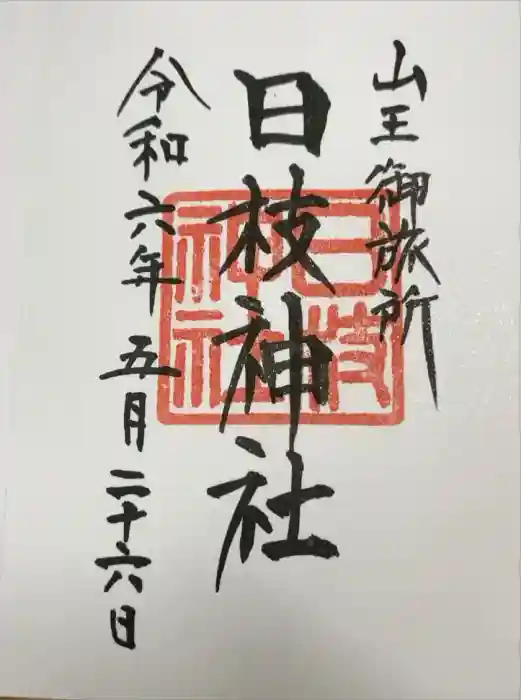 山王御旅所
日枝神社
日枝
神社
令和六年五月二十六日